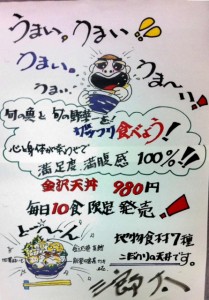 うまい。うまい!!
うまい。
うまい。
うま〜い。
旬の魚と旬の野菜を
ガッツリ食べよう!
心と身体が幸せで
満足度、満腹感 100%!!
金沢天丼 980円
毎日10食 限定 発売!
ど〜〜ん
地物食材7種
こだわりの天丼です。